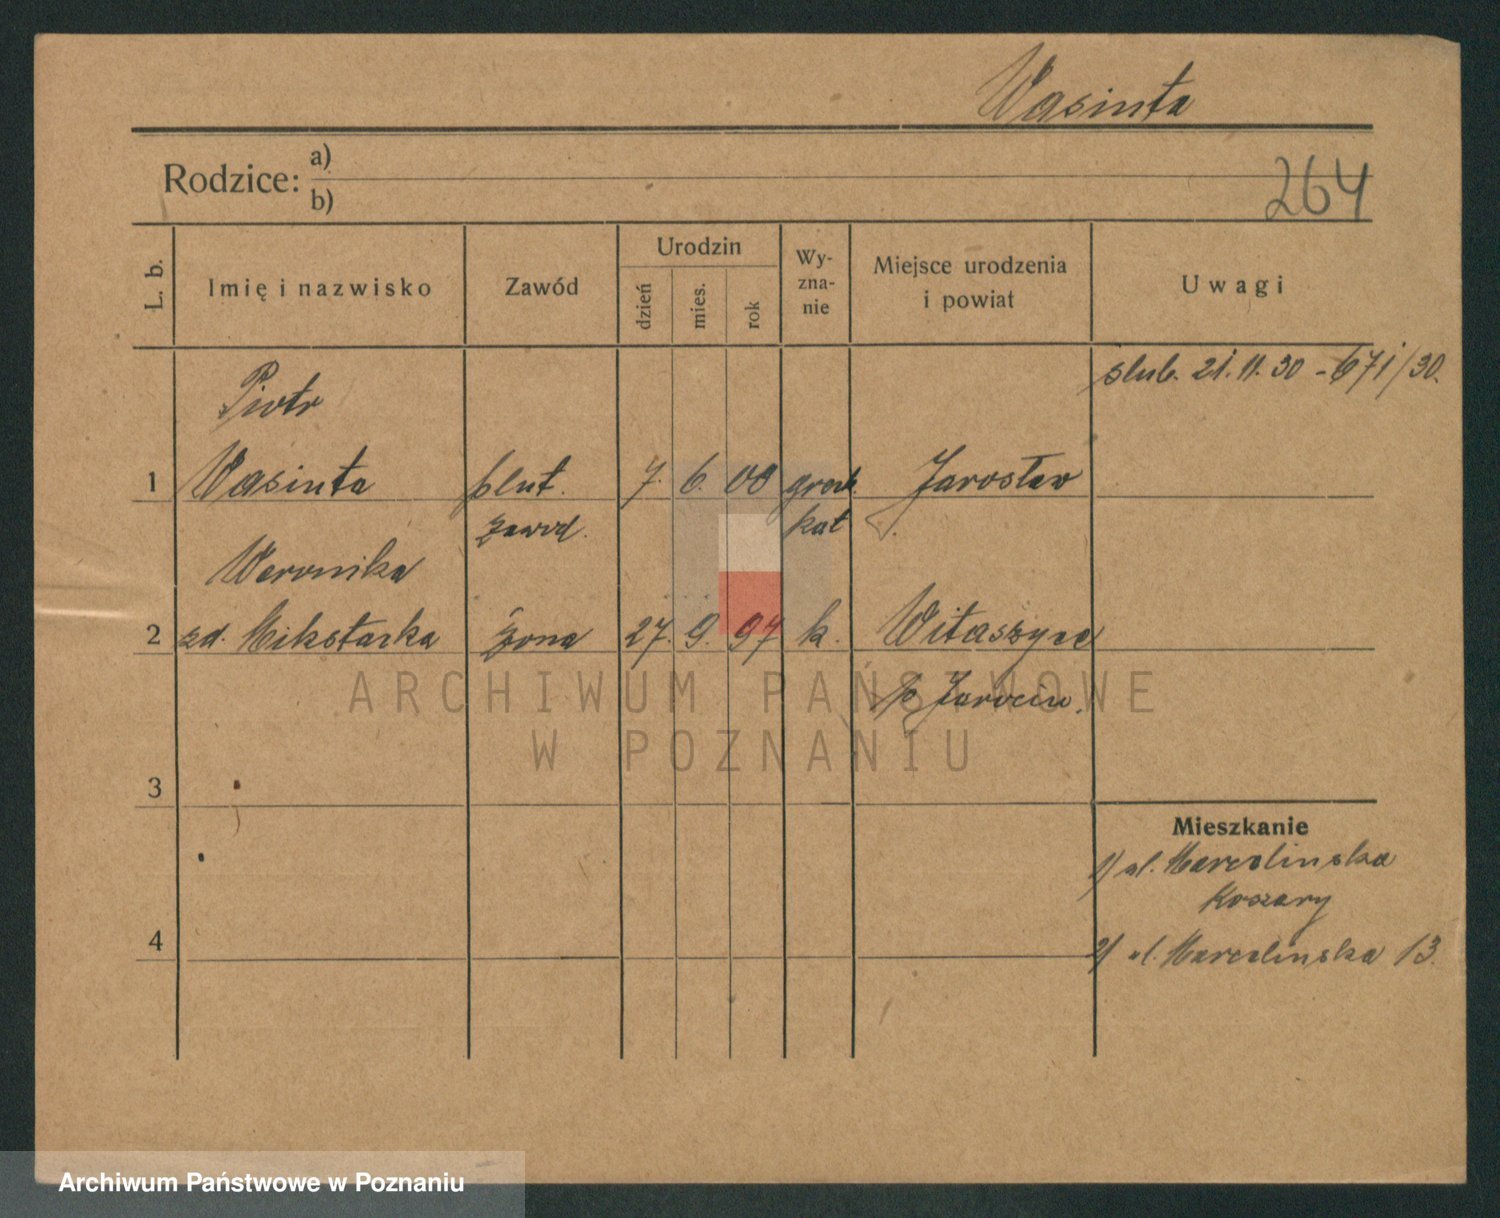 Wasinta
Rodzice: a)
b)
264
L. b.
Imię i nazwisko
Zawód
Urodzin
dzień
mies.
rok
Wy-
zna-
nie
Miejsce urodzenia
i powiat
Uwagi
ślub. 21.11.30 - 671/30.
Piotr
1 Wasinta plut. 7. 6. 00 greck. Jarosław
zawod. kat
Weronika
2 zd. Mikstacka żona 27. 9. 97 k. Witaszyce
p. Jarocin.
ARCHIWUM PAŃSTWOWE
W POZNANIU
3
Mieszkanie
1) ul. Marcelinska
Koszary
4
2) ul. Marcelinska 13.
Archiwum Państwowe w Poznaniu